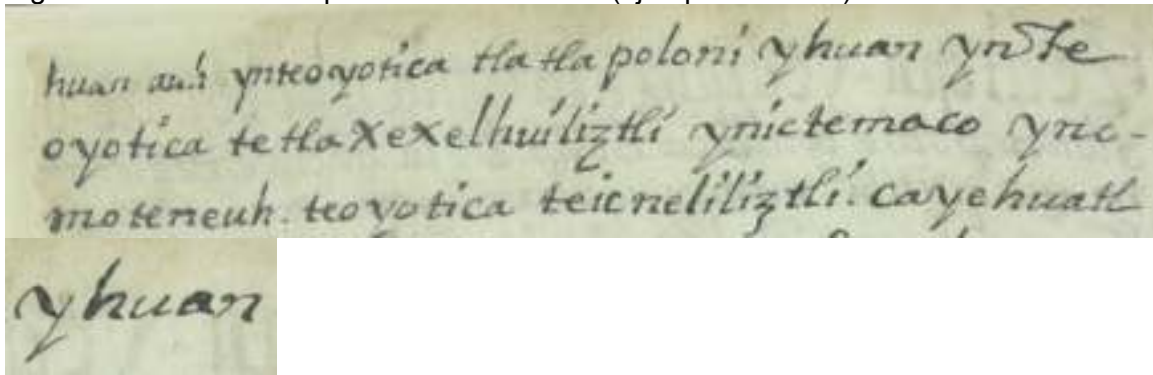 huan auh ynteoyotica tlatlapoloni yhuan ynte
oyotica tetlaxexelhuiliztli ynictemaco ync-
moteneuh. teoyotica teicneliliztli. cayehuatl
yhuan